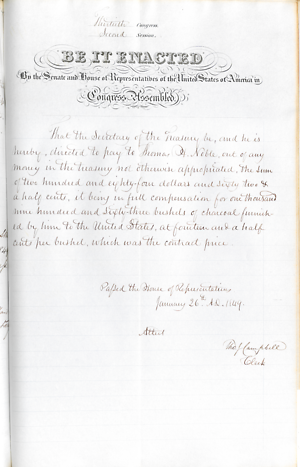 Thirtieth Congress
Second Session
BE IT ENACTED
By the Senate and House of Representatives of the United States of America in
Congress Assembled,
That the Secretary of the Treasury be, and he is
hereby, directed to pay to Thomas N. Noble, out of any
money in the treasury not otherwise appropriated, the sum
of two hundred and eighty-four dollars and sixty two &
a half cents, it being in full compensation for one thousand
nine hundred and sixty-three bushels of charcoal furnish-
ed by him to the United States, at fourteen and a half
cents per bushel, which was the contract price.
Passed the House of Representatives
January 26th A.D. 1849.
Attest
Tho J Campbell
Clerk